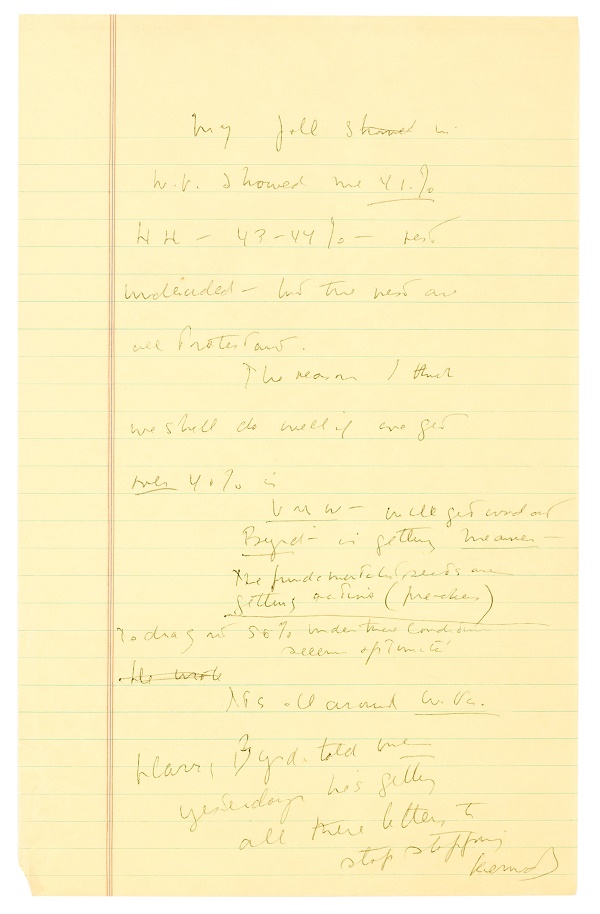 My poll showed in
W.V. showed me 41%
HH - 43-44% - rest
undecided - but the rest are
all Protestant.
The reason I think
we shall do well if we get
over 40% is
UMW - will get word out
Byrd - is getting meaner -
The fundamentalist sects are
getting active (preachers)
To drag out 50% under these conditions
seems optimistic
He wrote
all around W. Va.
Harry Byrd told me
yesterday he's getting
all these letters to
stop stopping
Kennedy